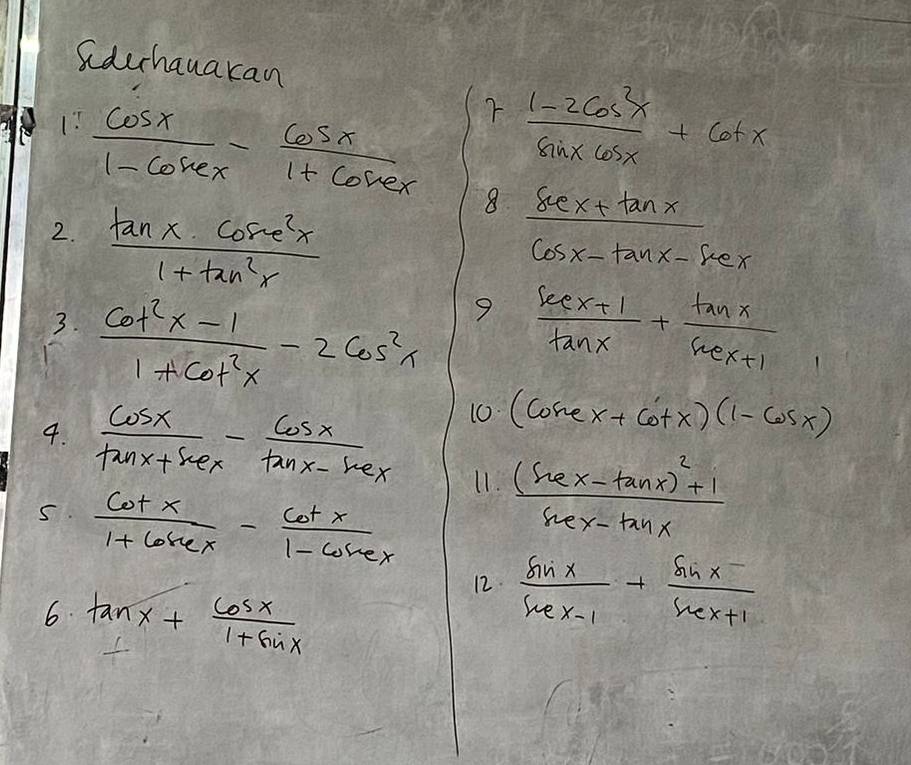 Sederhanakan
1. cosx / (1 - cosecx) - cosx / (1 + cosecx)
2. tan x . cosec²x / (1 + tan²x)
3. (cot²x - 1) / (1 + cot²x) - 2 cos²x
4. cosx / (tanx + secx) - cosx / (tanx - secx)
5. cot x / (1 + cosecx) - cot x / (1 - cosecx)
6. tanx + cosx / (1 + sinx)
7 (1 - 2cos²x) / (sinx cosx) + cot x
8. (secx + tanx) / (cosx - tanx - secx)
9 (secx + 1) / tanx + tanx / (secx + 1)
10. (cosec x + cot x)(1 - cosx)
11. ((sec x - tanx)² + 1) / (secx - tanx)
12. sin x / (secx - 1) + sin x / (secx + 1)